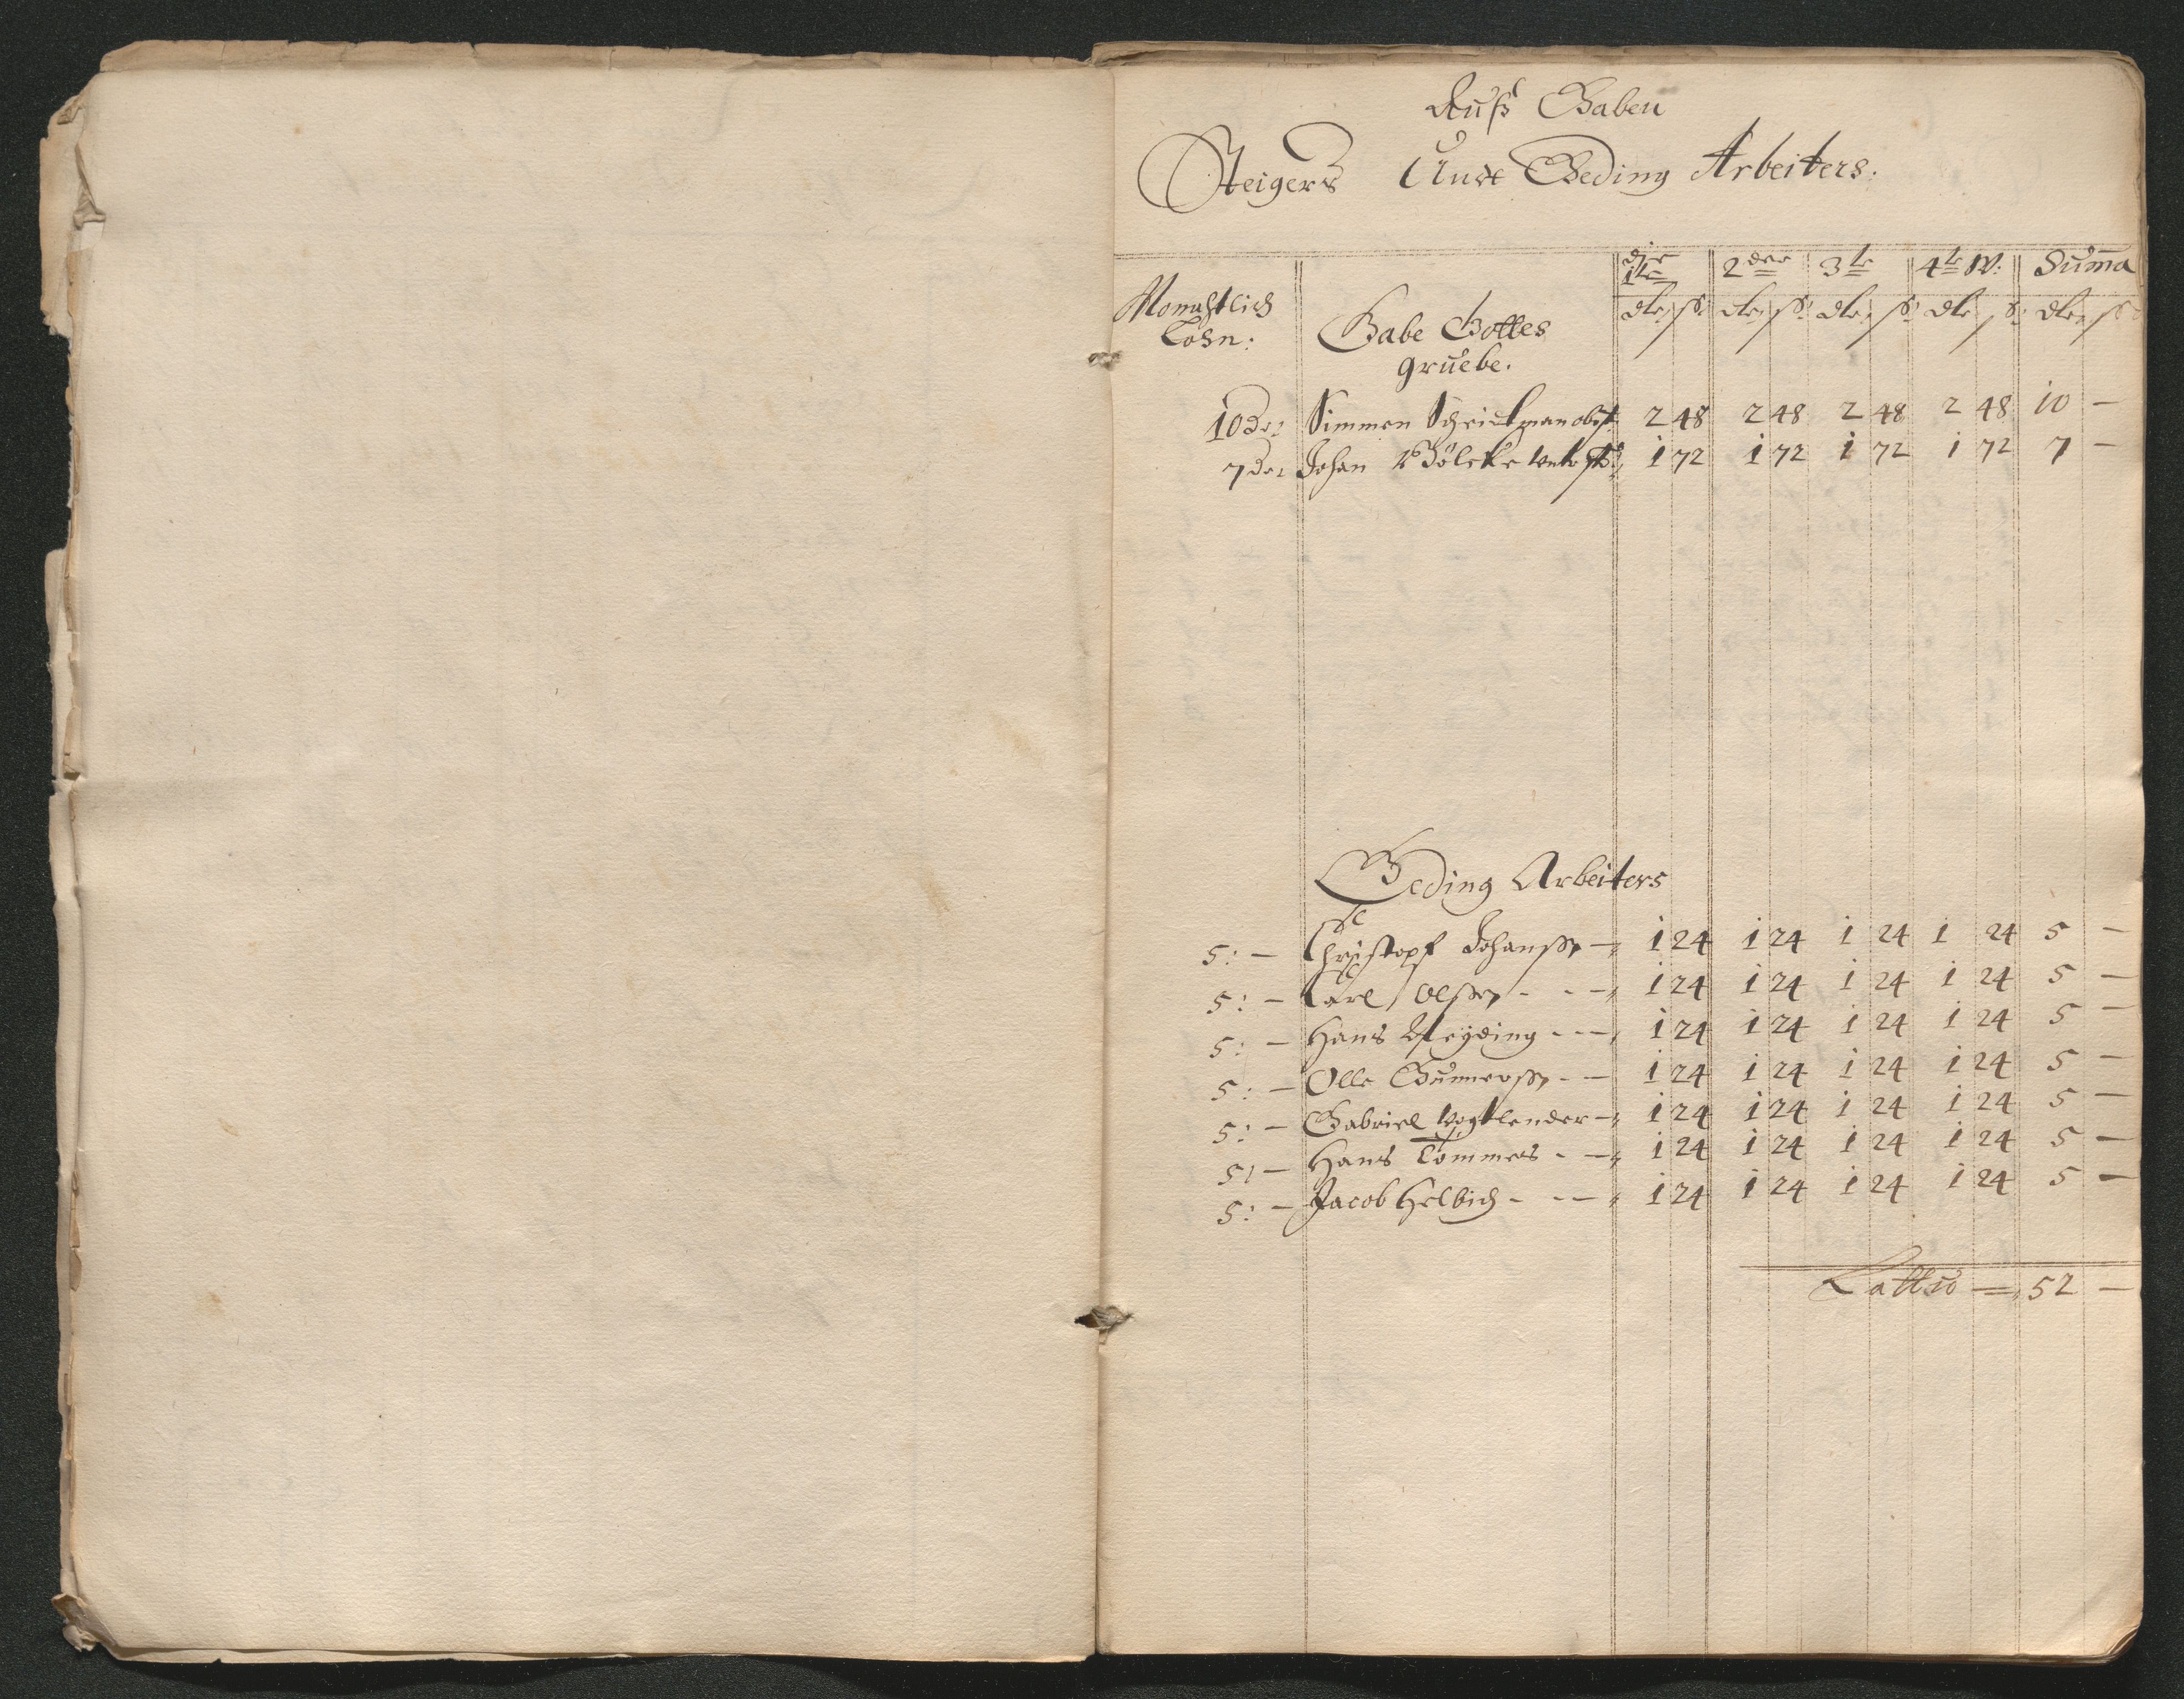 Auß Gaben
Steigers Und Geding Arbeiters.
die 1te 2der 3te 4te W: Summa
Monahtlich dlr: ß: dlr: ß: dlr: ß: dlr: ß: dlr: ß:
Lohn: Gabe Gottes
gruebe.
10 Dr: Simmen Schrickman obst: 2 48 2 48 2 48 2 48 10 —
7 Dr: Johan Bölcke Unter St: 1 72 1 72 1 72 1 72 7 —
Geding Arbeiters
5: — Christopf Johanßen — 1 24 1 24 1 24 1 24 5 —
5: — Carl Olßen - - — 1 24 1 24 1 24 1 24 5 —
5: — Hans Neyding - - — 1 24 1 24 1 24 1 24 5 —
5: — Olle Gunnerßen - — 1 24 1 24 1 24 1 24 5 —
5: — Gabriel Vogtlender — 1 24 1 24 1 24 1 24 5 —
5: — Hans Tommes - — 1 24 1 24 1 24 1 24 5 —
5: — Jacob Helbich - - — 1 24 1 24 1 24 1 24 5 —
Lattus — 52 —